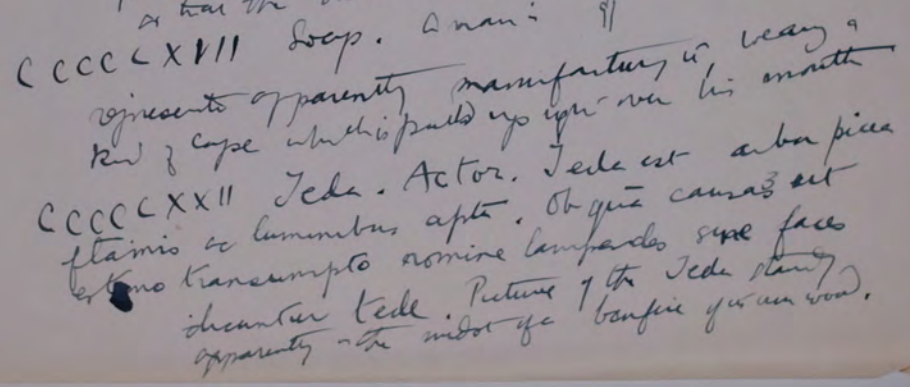 or that the
CCCCCXVII Soap. A man is
represented apparently manufacturing it, wearing a
kind of cape which is pulled up right over his mouth
CCCCCXXII Teda. Actor. Teda est arbor picea
flamis ac luminibus apta. Ob quā causā
transumpto nomine lampades sive faces
dicuntur tede. Picture of the Teda standing
apparently in the midst of a bonfire of its own wood.